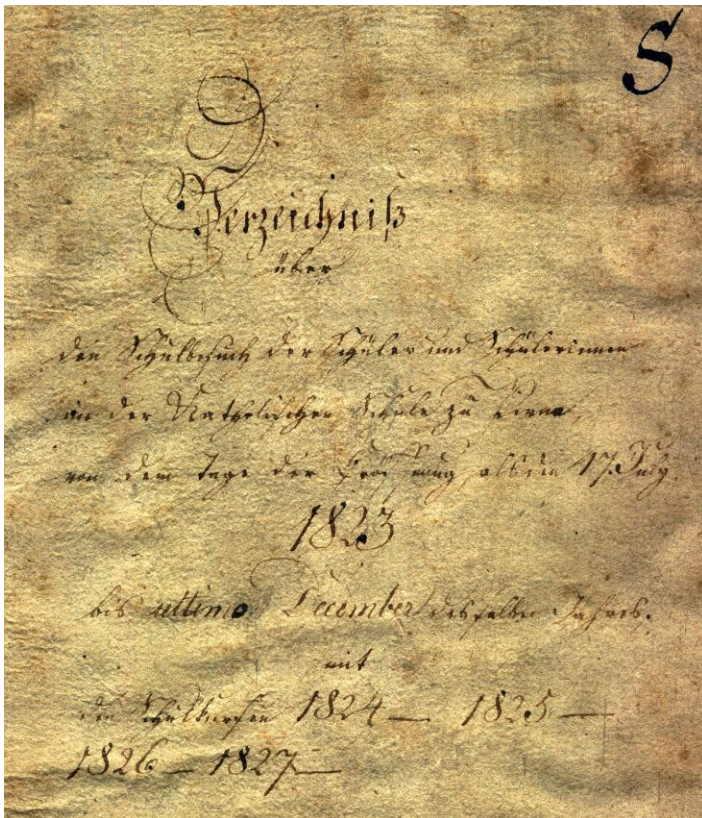 S
Verzeichniß
über
den Schulbesuch der Schüler und Schülerinnen
in der Katholischen Schule zu Pirna,
von dem Tage der Eröffnung, als den 17. July
1823
bis ultimo December desselben Jahres.
mit
den 1824 — 1825 —
1826 — 1827 —